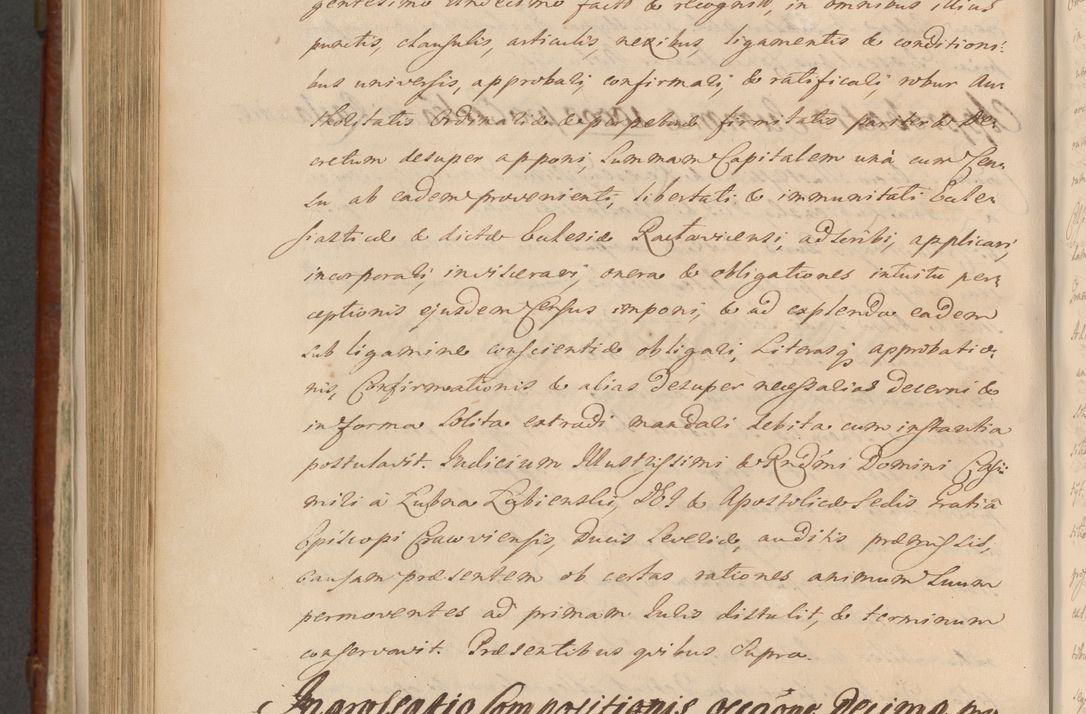 gentesimo undecimo facto & recognito, in omnibus illius
punctis, clausulis, articulis, nexibus, ligamentis & conditioni:
bus universis, approbari, confirmari, & ratificari, robur Au:
thoritatis Ordinariæ & perpetuæ firmitatis partiri & De:
cretum desuper apponi, Summam Capitalem unà cum Cen:
su ab eadem provenienti, libertati & immunitati Eccle:
siasticæ & dictæ Ecclesiæ Raclaviensi, adscribi, applicari,
incorporari, inviscerari, onera & obligationes intuitu per:
ceptionis ejusdem Census imponi, & ad explenda eadem
sub ligamine conscientiæ obligari, Literasq approbatio:
nis, Confirmationis & alias desuper necessarias decerni &
in forma solita extradi mandari debita cum instantia
postulavit. Judicium Illustrissimi & Rndmi Domini Casi:
miri à Lubna Lubienski, DEI & Apostolicæ Sedis Gratiâ
Episcopi Cracoviensis, Ducis Severiæ, auditis præmissis,
causam præsentem ob certas rationes animum Suum
permoventes ad primam Julii distulit, & terminum
conservavit. Præsentibus quibus Supra.
Ingrossatio Compositionis occasione Decimæ